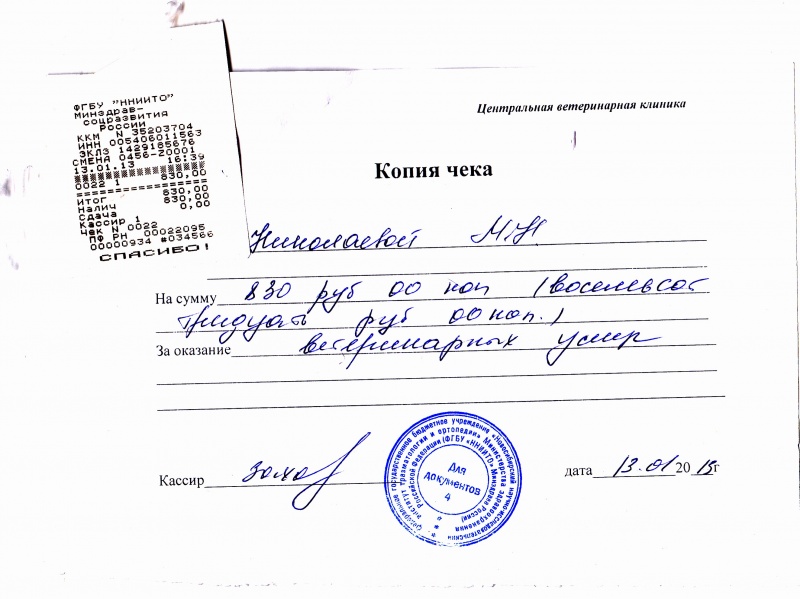 ФГБУ "ННИИТО"
Минздрав-
соцразвития
России
ККМ N 35203704
ИНН 005406011563
ЭКЛЗ 1429185676
СМЕНА 0456-Z0001
13.01.13 16:39
0022 1 830,00
ИТОГ 830,00
Налич 830,00
Сдача 0,00
Кассир 1
Чек N 0022
ПФ РН 00022095
00000934 #034566
СПАСИБО!
Центральная ветеринарная клиника
Копия чека
Николаевой М.Н
На сумму 830 руб 00 коп (восемьсот
тридцать руб 00 коп.)
За оказание ветеринарных услуг
Кассир
дата 13.01 2013г
Федеральное государственное бюджетное учреждение «Новосибирский научно-исследовательский
институт травматологии и ортопедии» Министерства здравоохранения
Российской Федерации (ФГБУ «ННИИТО» Минздрава России)
Для
документов
4